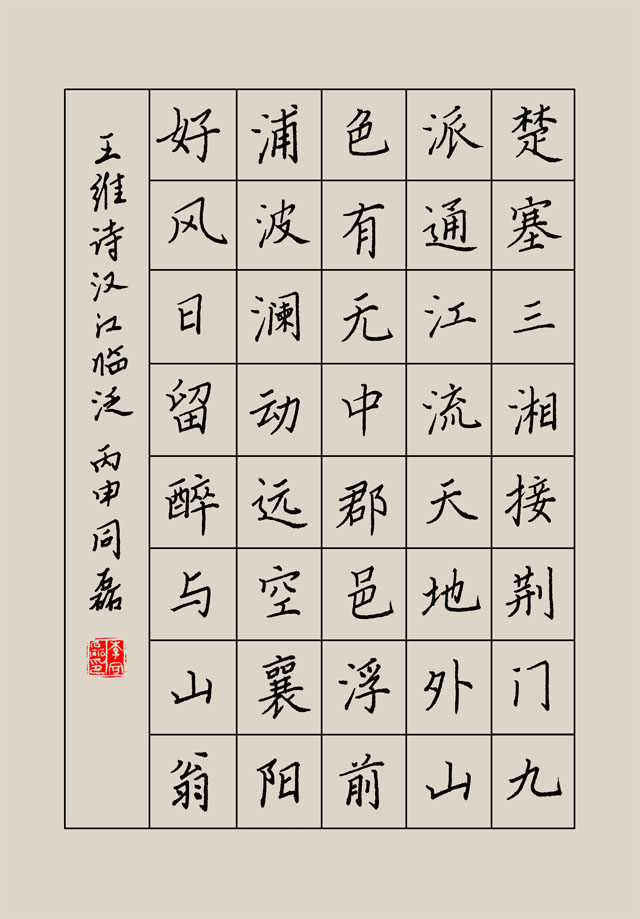 楚塞三湘接荆门九
派通江流天地外山
色有无中郡邑浮前
浦波澜动远空襄阳
好风日留醉与山翁
王维诗汉江临泛 丙申同磊
李同磊印